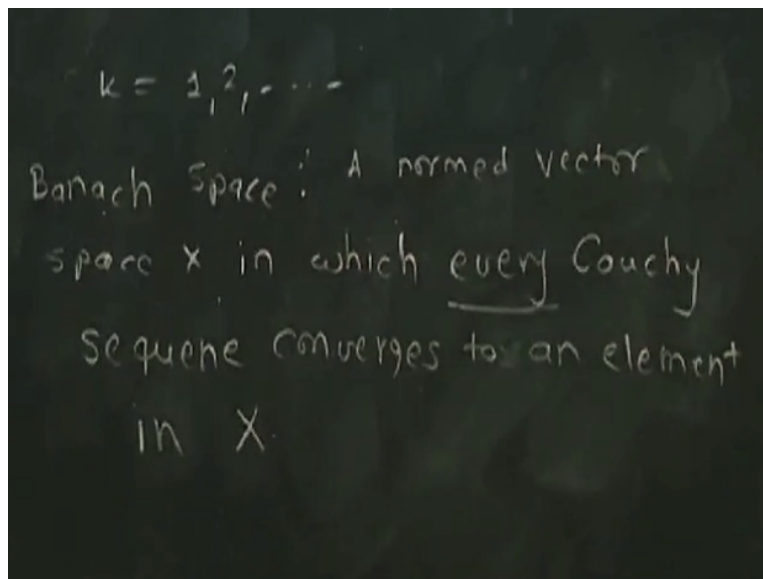 k = 1, 2, . . . .
Banach Space : A normed vector
space X in which every Couchy
sequene converges to an element
in X.